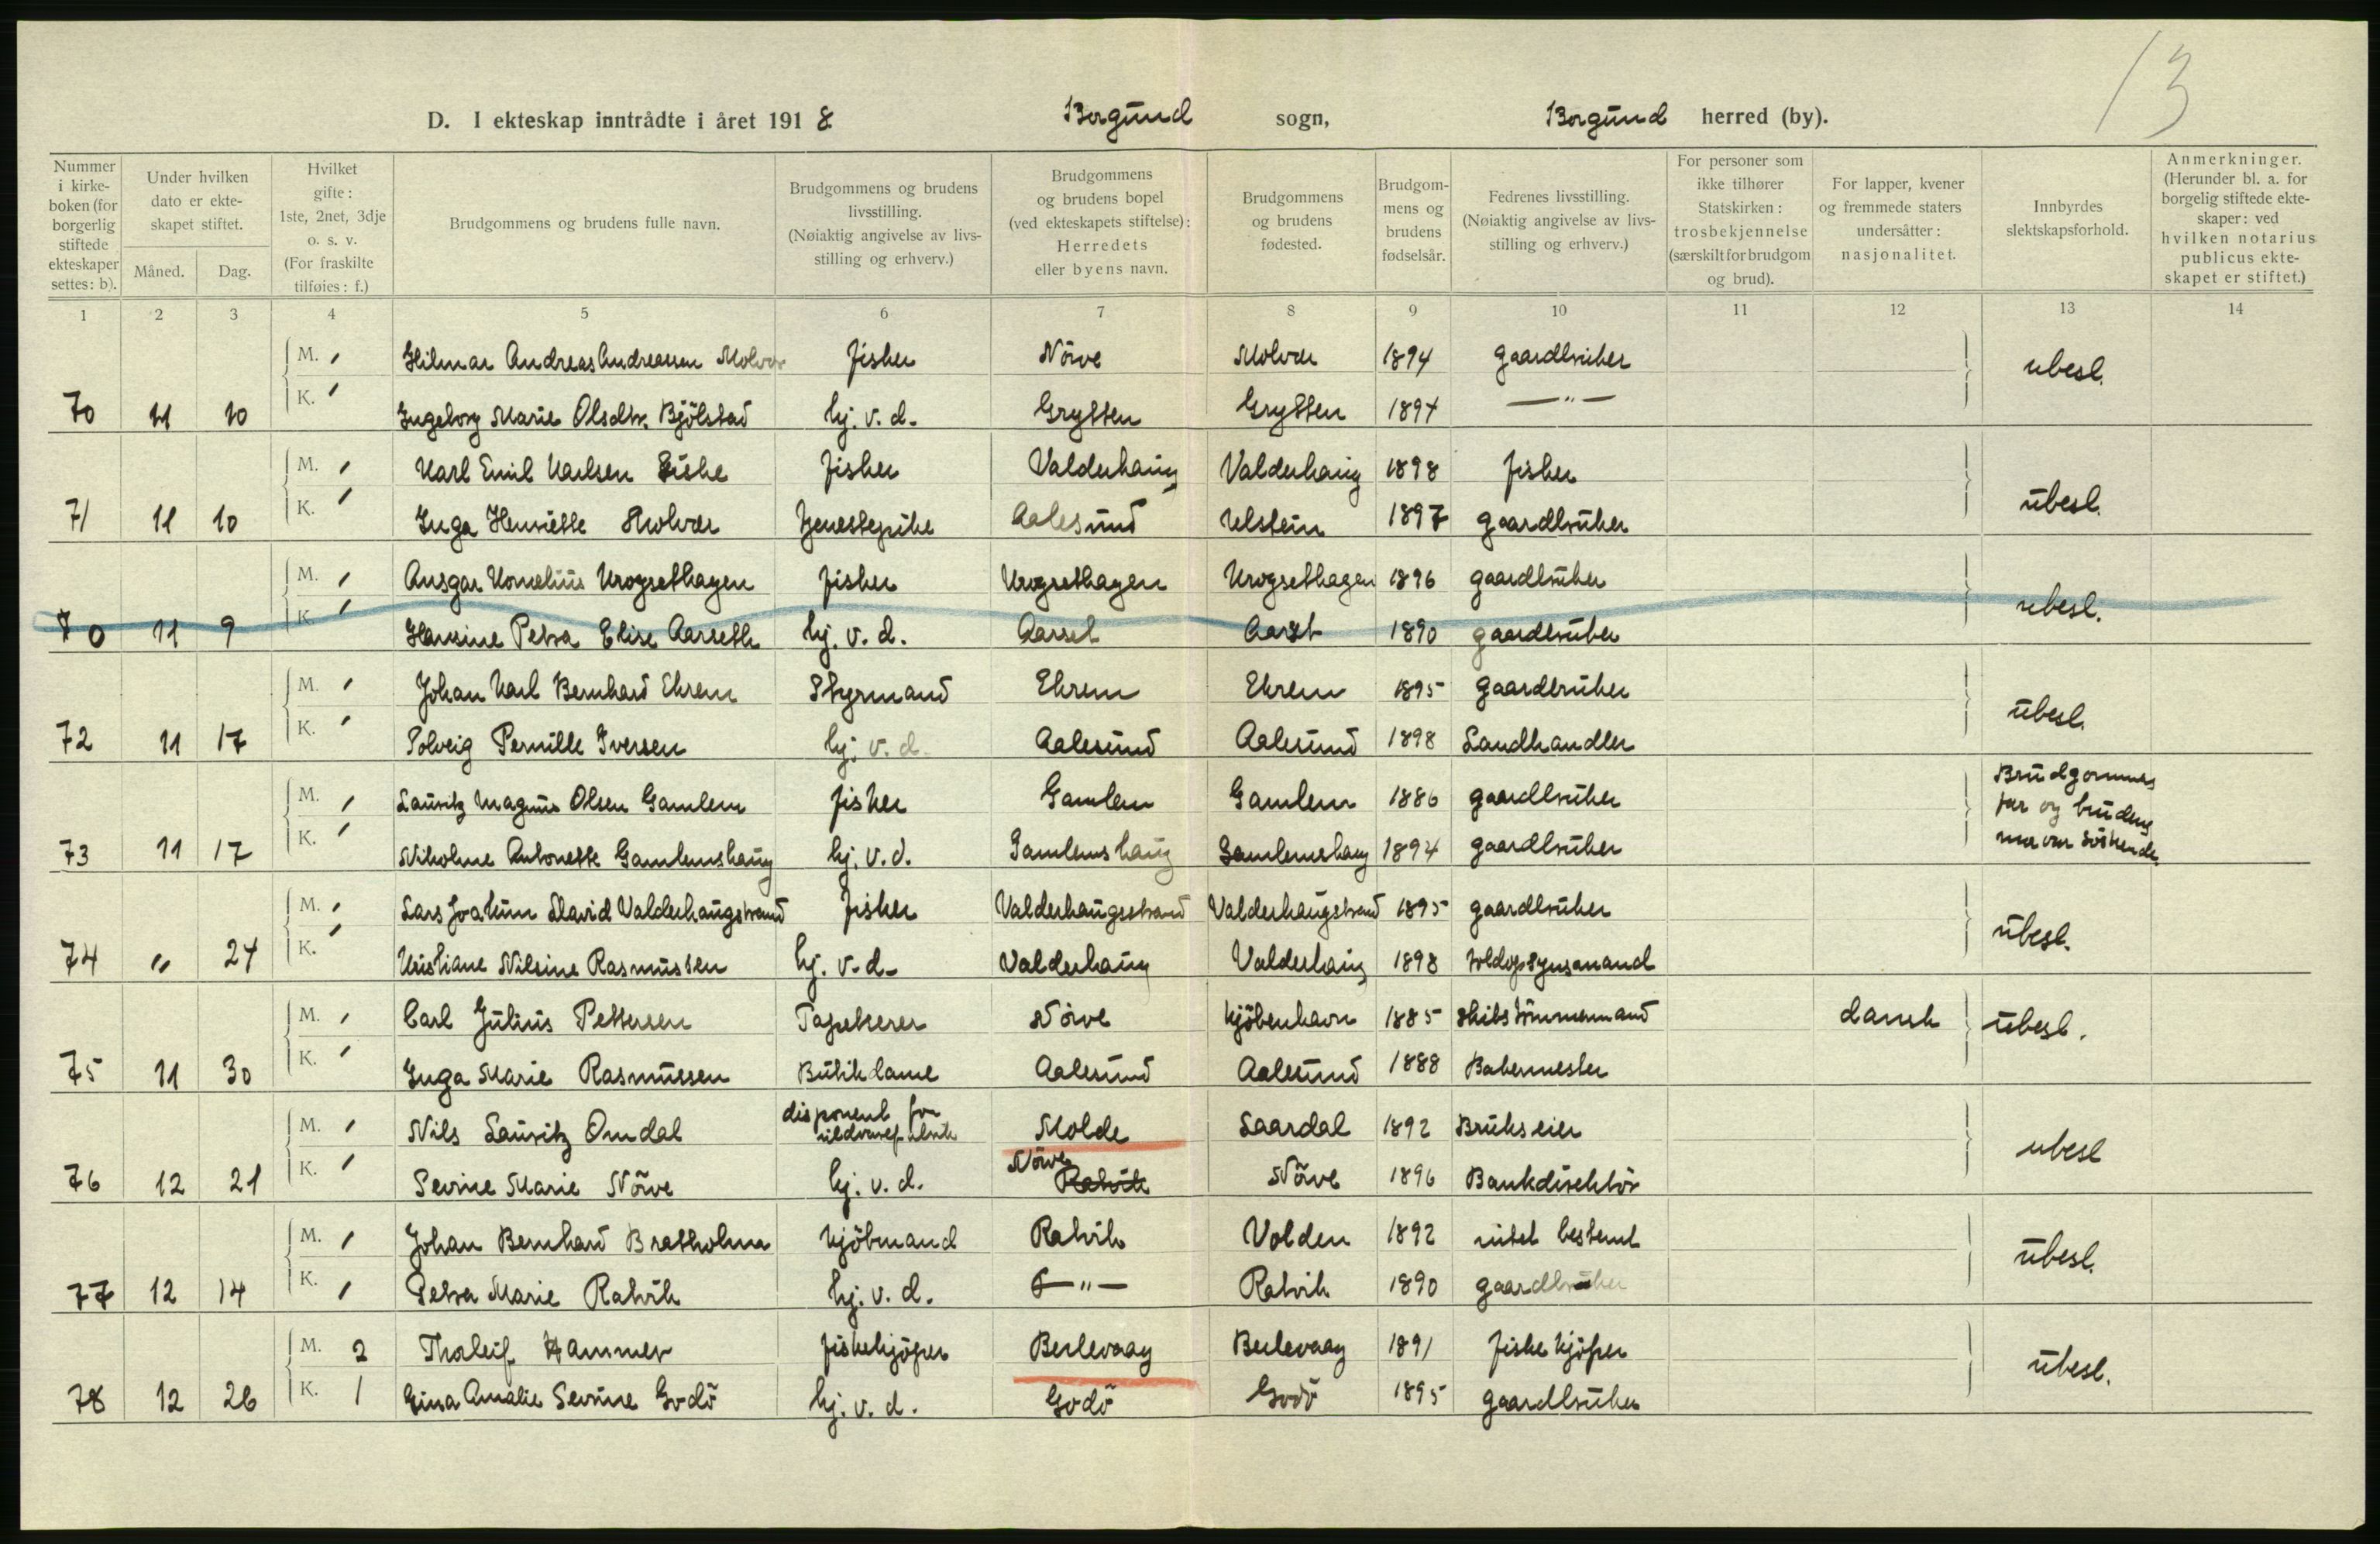 13
D. I ekteskap inntrådte i året 1918 Borgund sogn, Borgund herred (by).
Nummer i kirkeboken (for borgerlig stiftede ekteskaper settes: b).
Under hvilken dato er ekteskapet stiftet.
Måned. Dag.
Hvilket gifte: 1ste, 2net, 3dje o. s. v. (For fraskilte tilføies: f.)
Brudgommens og brudens fulle navn.
Brudgommens og brudens livsstilling. (Nøiaktig angivelse av livsstilling og erhverv.)
Brudgommens og brudens bopel (ved ekteskapets stiftelse): Herredets eller byens navn.
Brudgommens og brudens fødested.
Brudgommens og brudens fødselsår.
Fedrenes livsstilling. (Nøiaktig angivelse av livsstilling og erhverv.)
For personer som ikke tilhører Statskirken: trosbekjennelse (særskilt for brudgom og brud).
For lapper, kvener og fremmede staters undersåtter: nasjonalitet.
Innbyrdes slektskapsforhold.
Anmerkninger. (Herunder bl. a. for borgelig stiftede ekteskaper: ved hvilken notarius publicus ekteskapet er stiftet.)
1 2 3 4 5 6 7 8 9 10 11 12 13 14
M. / Hilmar Andreas Andreassen Molvær fisker Nörve Molvær 1894 gaardbruker ubesl.
70 11 10 K. / Ingeborg Marie Olsdtr. Bjölstad hj. v. d. Grytten Grytten 1894 — " —
M. / Karl Emil Karlsen fisker Valderhaug Valderhaug 1898 fisker
71 11 10 K. / Inga Henriette Molvær tjenestepike Aalesund Ulstein 1897 gaardbruker ubesl.
M. / Ansgar Kornelius Krogsethagen fisker Krogsethagen Krogsethagen 1896 gaardbruker
70 11 9 K. / Hansine Petra Elise Aarseth hj. v. d. Aarset Aarset 1890 gaardbruker ubesl.
M. / Johan Karl Bernhard Ekrem Styrmand Ekrem Ekrem 1895 gaardbruker
72 11 17 K. / Solveig Pernille Iversen hj. v. d. Aalesund Aalesund 1898 Landhandler ubesl.
M. / Lauritz Magnus Olsen Gamlem fisker Gamlem Gamlem 1886 gaardbruker Brudgommens far og brudens
73 11 17 K. / Nikoline Antonette Gamlemshaug hj. v. d. Gamlemshaug Gamlemshaug 1894 gaardbruker mor var söskende.
M. / Lars Joakim David Valderhaugstrand fisker Valderhaugsstrand Valderhaugstrand 1895 gaardbruker
74 " 24 K. / Kristiane Nilsine Rasmussen hj. v. d. Valderhaug Valderhaug 1898 toldopsynsmand ubesl.
M. / Carl Julius Pettersen Tapetserer Nörve Kjöbenhavn 1885 skibstömmermand dansk ubesl.
75 11 30 K. / Inga Marie Rasmussen Butikdame Aalesund Aalesund 1888 Bakermester
M. / Nils Lauritz Omdal disponent for Molde Laardal 1892 Brukseier
76 12 21 K. / Sevrine Marie Nörve hj. v. d. Nörve Ratvik Nörve 1896 Bankdirektör ubesl
M. / Johan Bernhard Bratholm Kjöbmand Ratvik Volden 1892 intet bestemt
77 12 14 K. / Petra Marie Ratvik hj. v. d. — " — Ratvik 1890 gaardbruker ubesl.
M. 2 Thorleif Hammer fiskekjöper Berlevaag Berlevaag 1891 fiskekjöper
78 12 26 K. 1 Gina Amalie Sevrine Godö hj. v. d. Godö Godö 1895 gaardbruker ubesl.